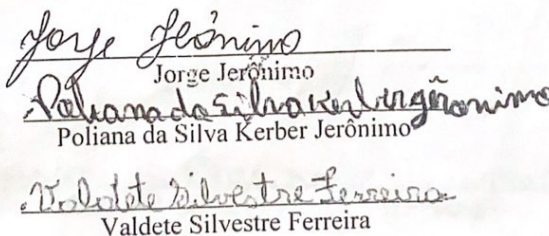 Jorge Jerônimo
Jorge Jerônimo
Poliana da Silva Kerber gerônimo
Poliana da Silva Kerber Jerônimo
Valdete Silvestre Ferreira
Valdete Silvestre Ferreira